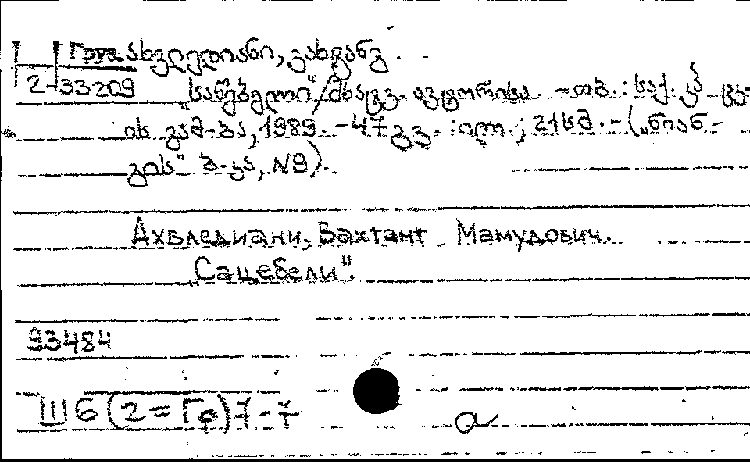 Груз. ახვლედიანი, ვახტანგ.
2-33209
„საწებელი“/მხატვ. ავტორისა. -თბ. : საქ. კპ ცკ-
ის გამ-ბა, 1989. -47 გვ. : ილ. ; 21სმ. - („ნიან-
გის“ ბ-კა, N9).
Ахвледиани, Вахтанг Мамудович.
„Сацебели“.
93484
Ш6(2=Гр)7-7